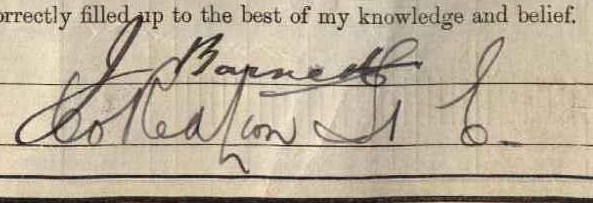 orrectly filled up to the best of my knowledge and belief.
J Barnett
Red Lion St E.